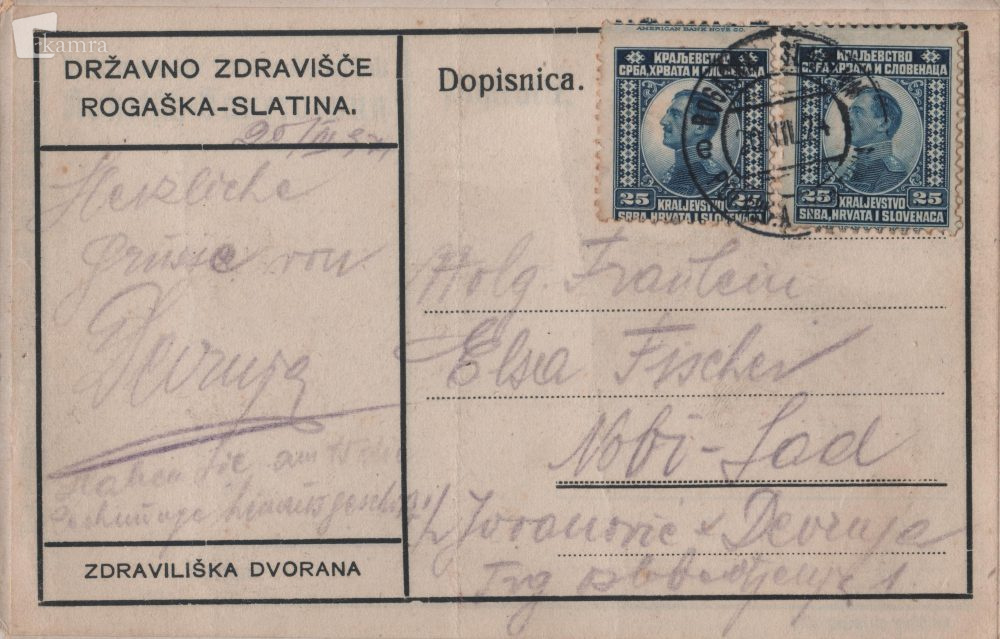 kamra
DRŽAVNO ZDRAVIŠČE
ROGAŠKA-SLATINA.
Herzliche
Grüsse von
Devrnja
Haben Sie am
ZDRAVILIŠKA DVORANA
Dopisnica.
AMERICAN BANK NOTE CO.
КРАЉЕВСТВО
СРБА, ХРВАТА И СЛОВЕНАЦА
25 25
KRALJEVSTVO
SRBA, HRVATA I SLOVENACA
КРАЉЕВСТВО
СРБА, ХРВАТА И СЛОВЕНАЦА
25 25
KRALJEVSTVO
SRBA, HRVATA I SLOVENACA
Wolg. Fraulein
Elsa Fischer
Novi-Sad
Jovanović & Devrnja
Trg oslobodjenja 1.